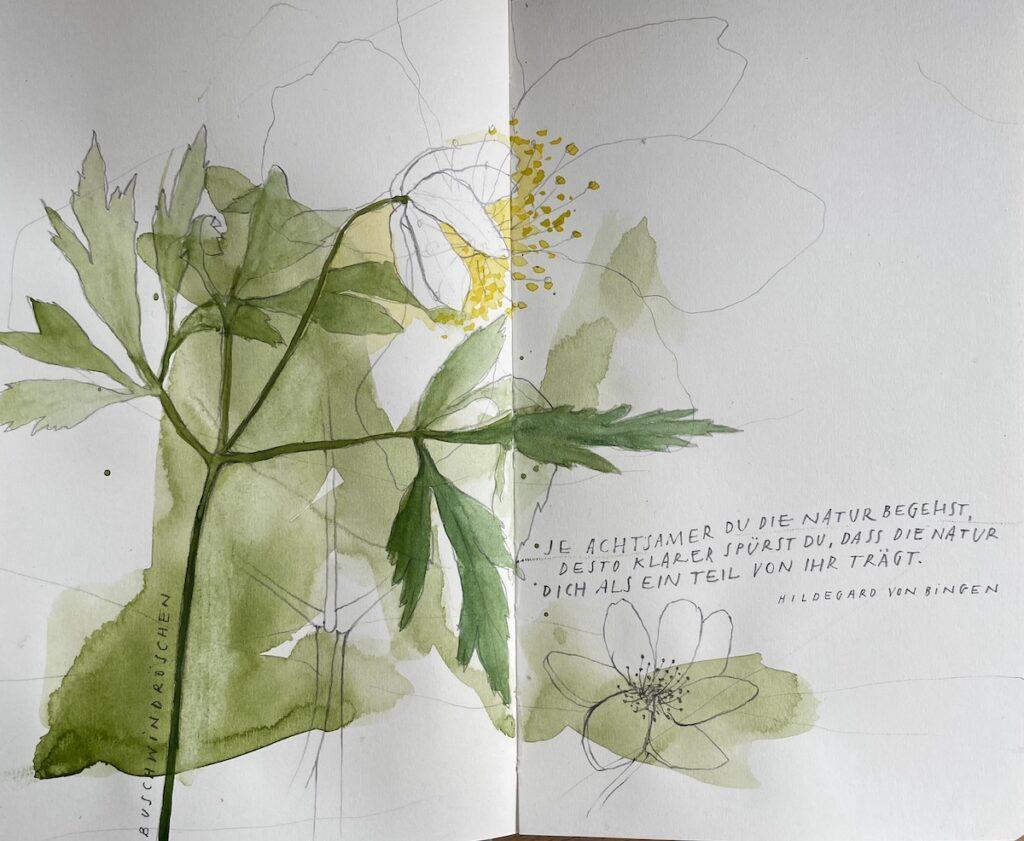 BUSCHWINDRÖSCHEN
JE ACHTSAMER DU DIE NATUR BEGEHST,
DESTO KLARER SPÜRST DU, DASS DIE NATUR
DICH ALS EIN TEIL VON IHR TRÄGT.
HILDEGARD VON BINGEN